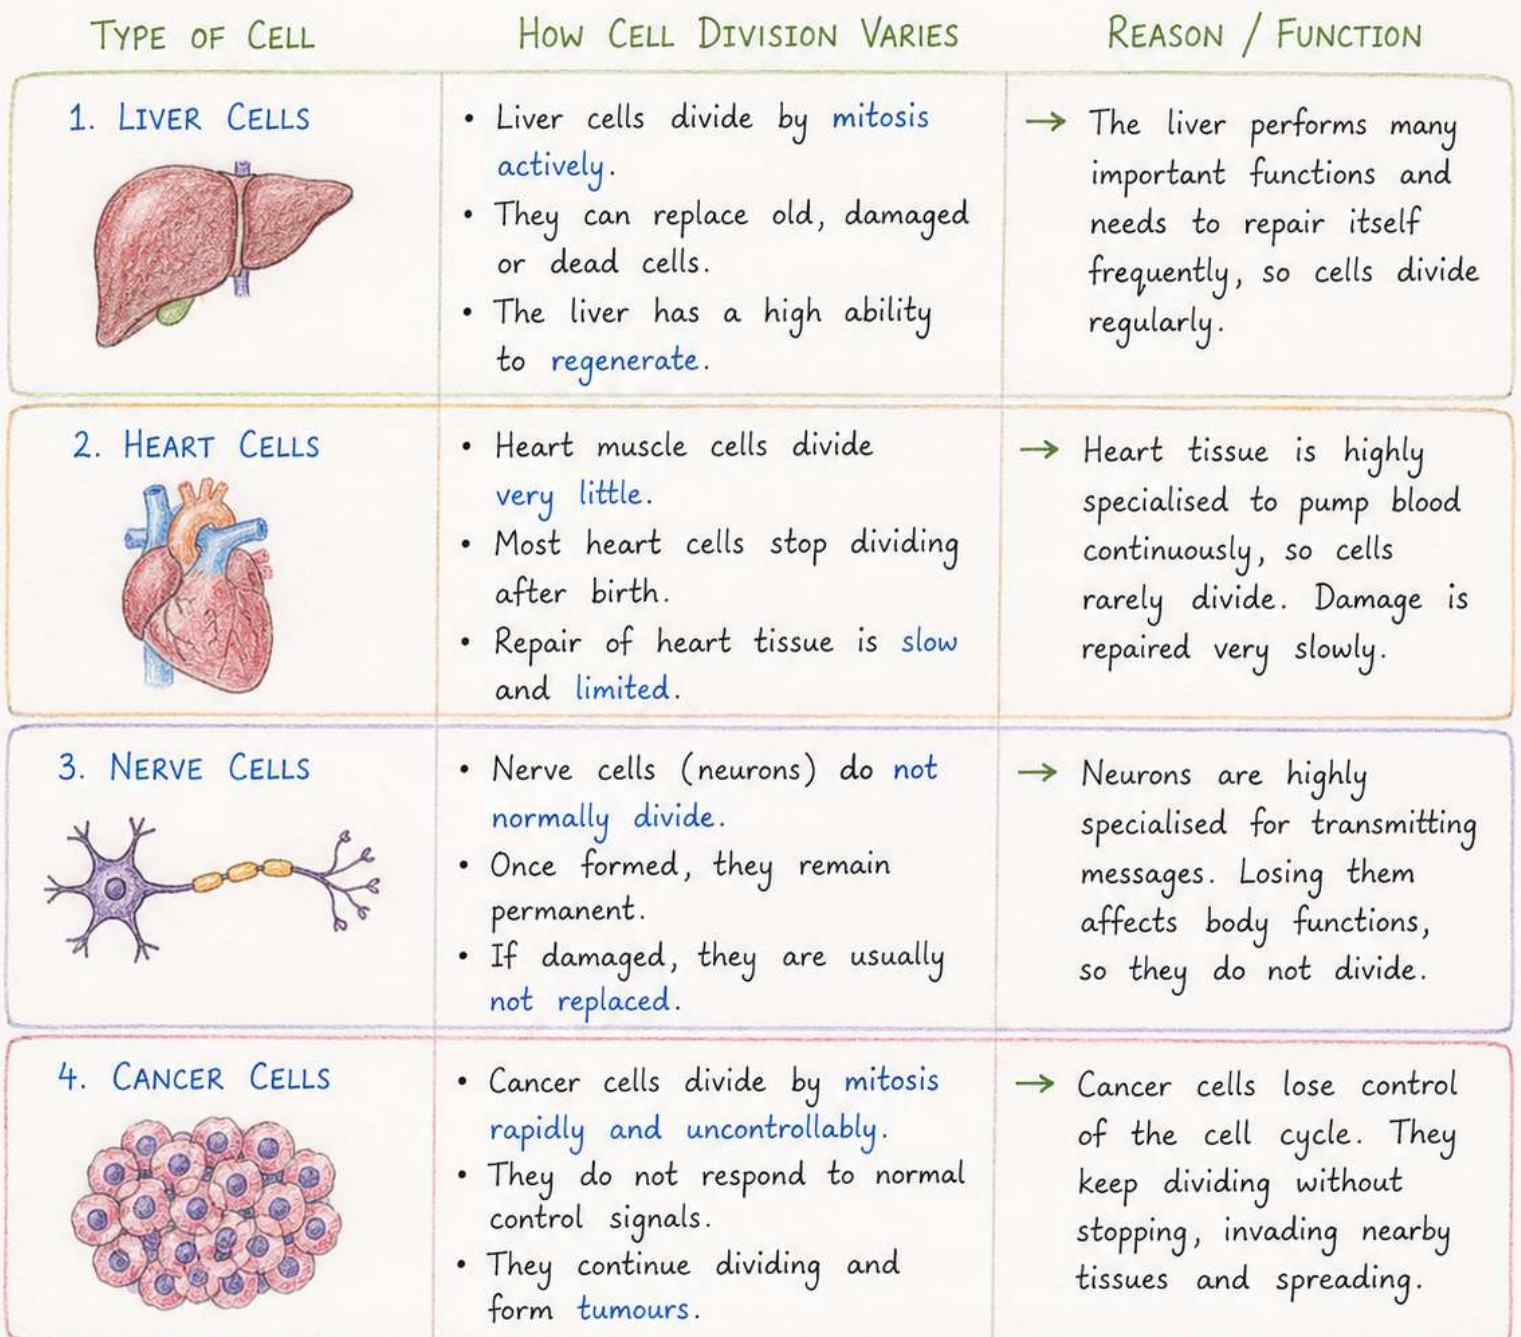 TYPE OF CELL
HOW CELL DIVISION VARIES
REASON / FUNCTION
1. LIVER CELLS
• Liver cells divide by mitosis
actively.
• They can replace old, damaged
or dead cells.
• The liver has a high ability
to regenerate.
→ The liver performs many
important functions and
needs to repair itself
frequently, so cells divide
regularly.
2. HEART CELLS
• Heart muscle cells divide
very little.
• Most heart cells stop dividing
after birth.
• Repair of heart tissue is slow
and limited.
→ Heart tissue is highly
specialised to pump blood
continuously, so cells
rarely divide. Damage is
repaired very slowly.
3. NERVE CELLS
• Nerve cells (neurons) do not
normally divide.
• Once formed, they remain
permanent.
• If damaged, they are usually
not replaced.
→ Neurons are highly
specialised for transmitting
messages. Losing them
affects body functions,
so they do not divide.
4. CANCER CELLS
• Cancer cells divide by mitosis
rapidly and uncontrollably.
• They do not respond to normal
control signals.
• They continue dividing and
form tumours.
→ Cancer cells lose control
of the cell cycle. They
keep dividing without
stopping, invading nearby
tissues and spreading.